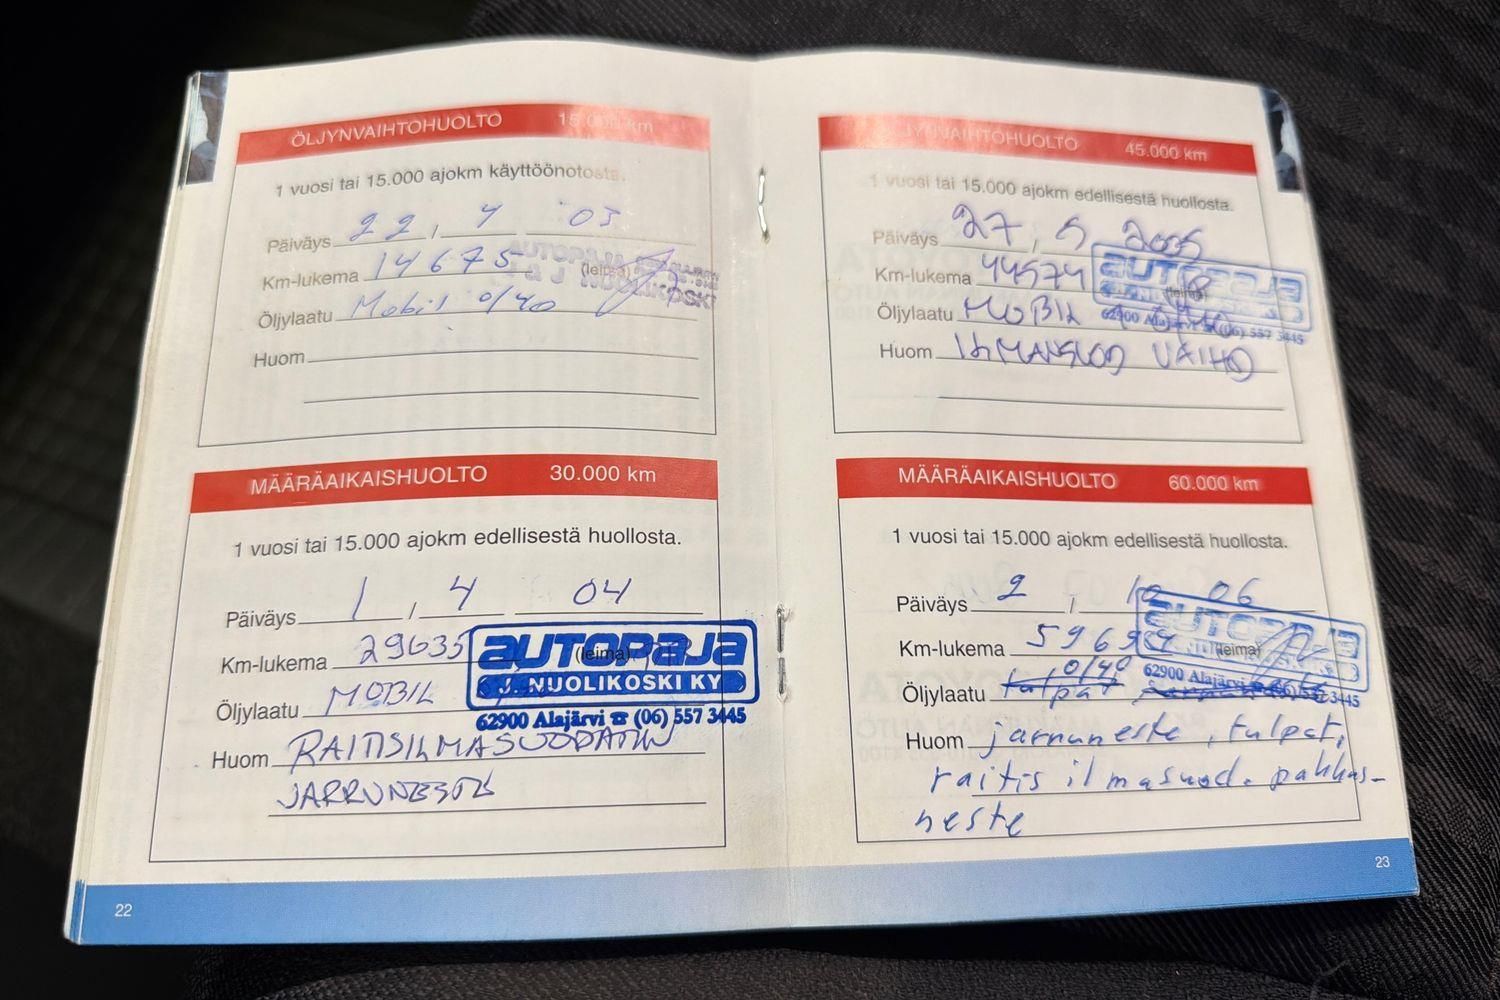 ÖLJYNVAIHTOHUOLTO 15.000 km
1 vuosi tai 15.000 ajokm käyttöönotosta.
Päiväys 22, 7 03
Km-lukema 14675
AUTOPAJA
(leima)
J NUOLIKOSKI
Öljylaatu Mobil 0/40
Huom
MÄÄRÄAIKAISHUOLTO 30.000 km
1 vuosi tai 15.000 ajokm edellisestä huollosta.
Päiväys 1 / 4 04
Km-lukema 29635
AUTOPAJA
(leima)
J. NUOLIKOSKI KY
62900 Alajärvi ☎ (06) 557 3445
Öljylaatu MOBIL
Huom RAITISILMASUODATIN
JARRUNESTE
22
YNVAIHTOHUOLTO 45.000 km
1 vuosi tai 15.000 ajokm edellisestä huollosta.
Päiväys 27, 5 2005
Km-lukema 44574
AUTOPAJA
(leima)
62900 Alajärvi ☎ (06) 557 3445
Öljylaatu MOBIL
Huom ILMANSUOD VAIHD
MÄÄRÄAIKAISHUOLTO 60.000 km
1 vuosi tai 15.000 ajokm edellisestä huollosta.
Päiväys 2 / 10 06
Km-lukema
AUTOPAJA
(leima)
62900 Alajärvi 3445
0/40
Öljylaatu tulpat
Huom jarruneste, tulpat,
raitis ilmasuod. pakkas-
neste
23